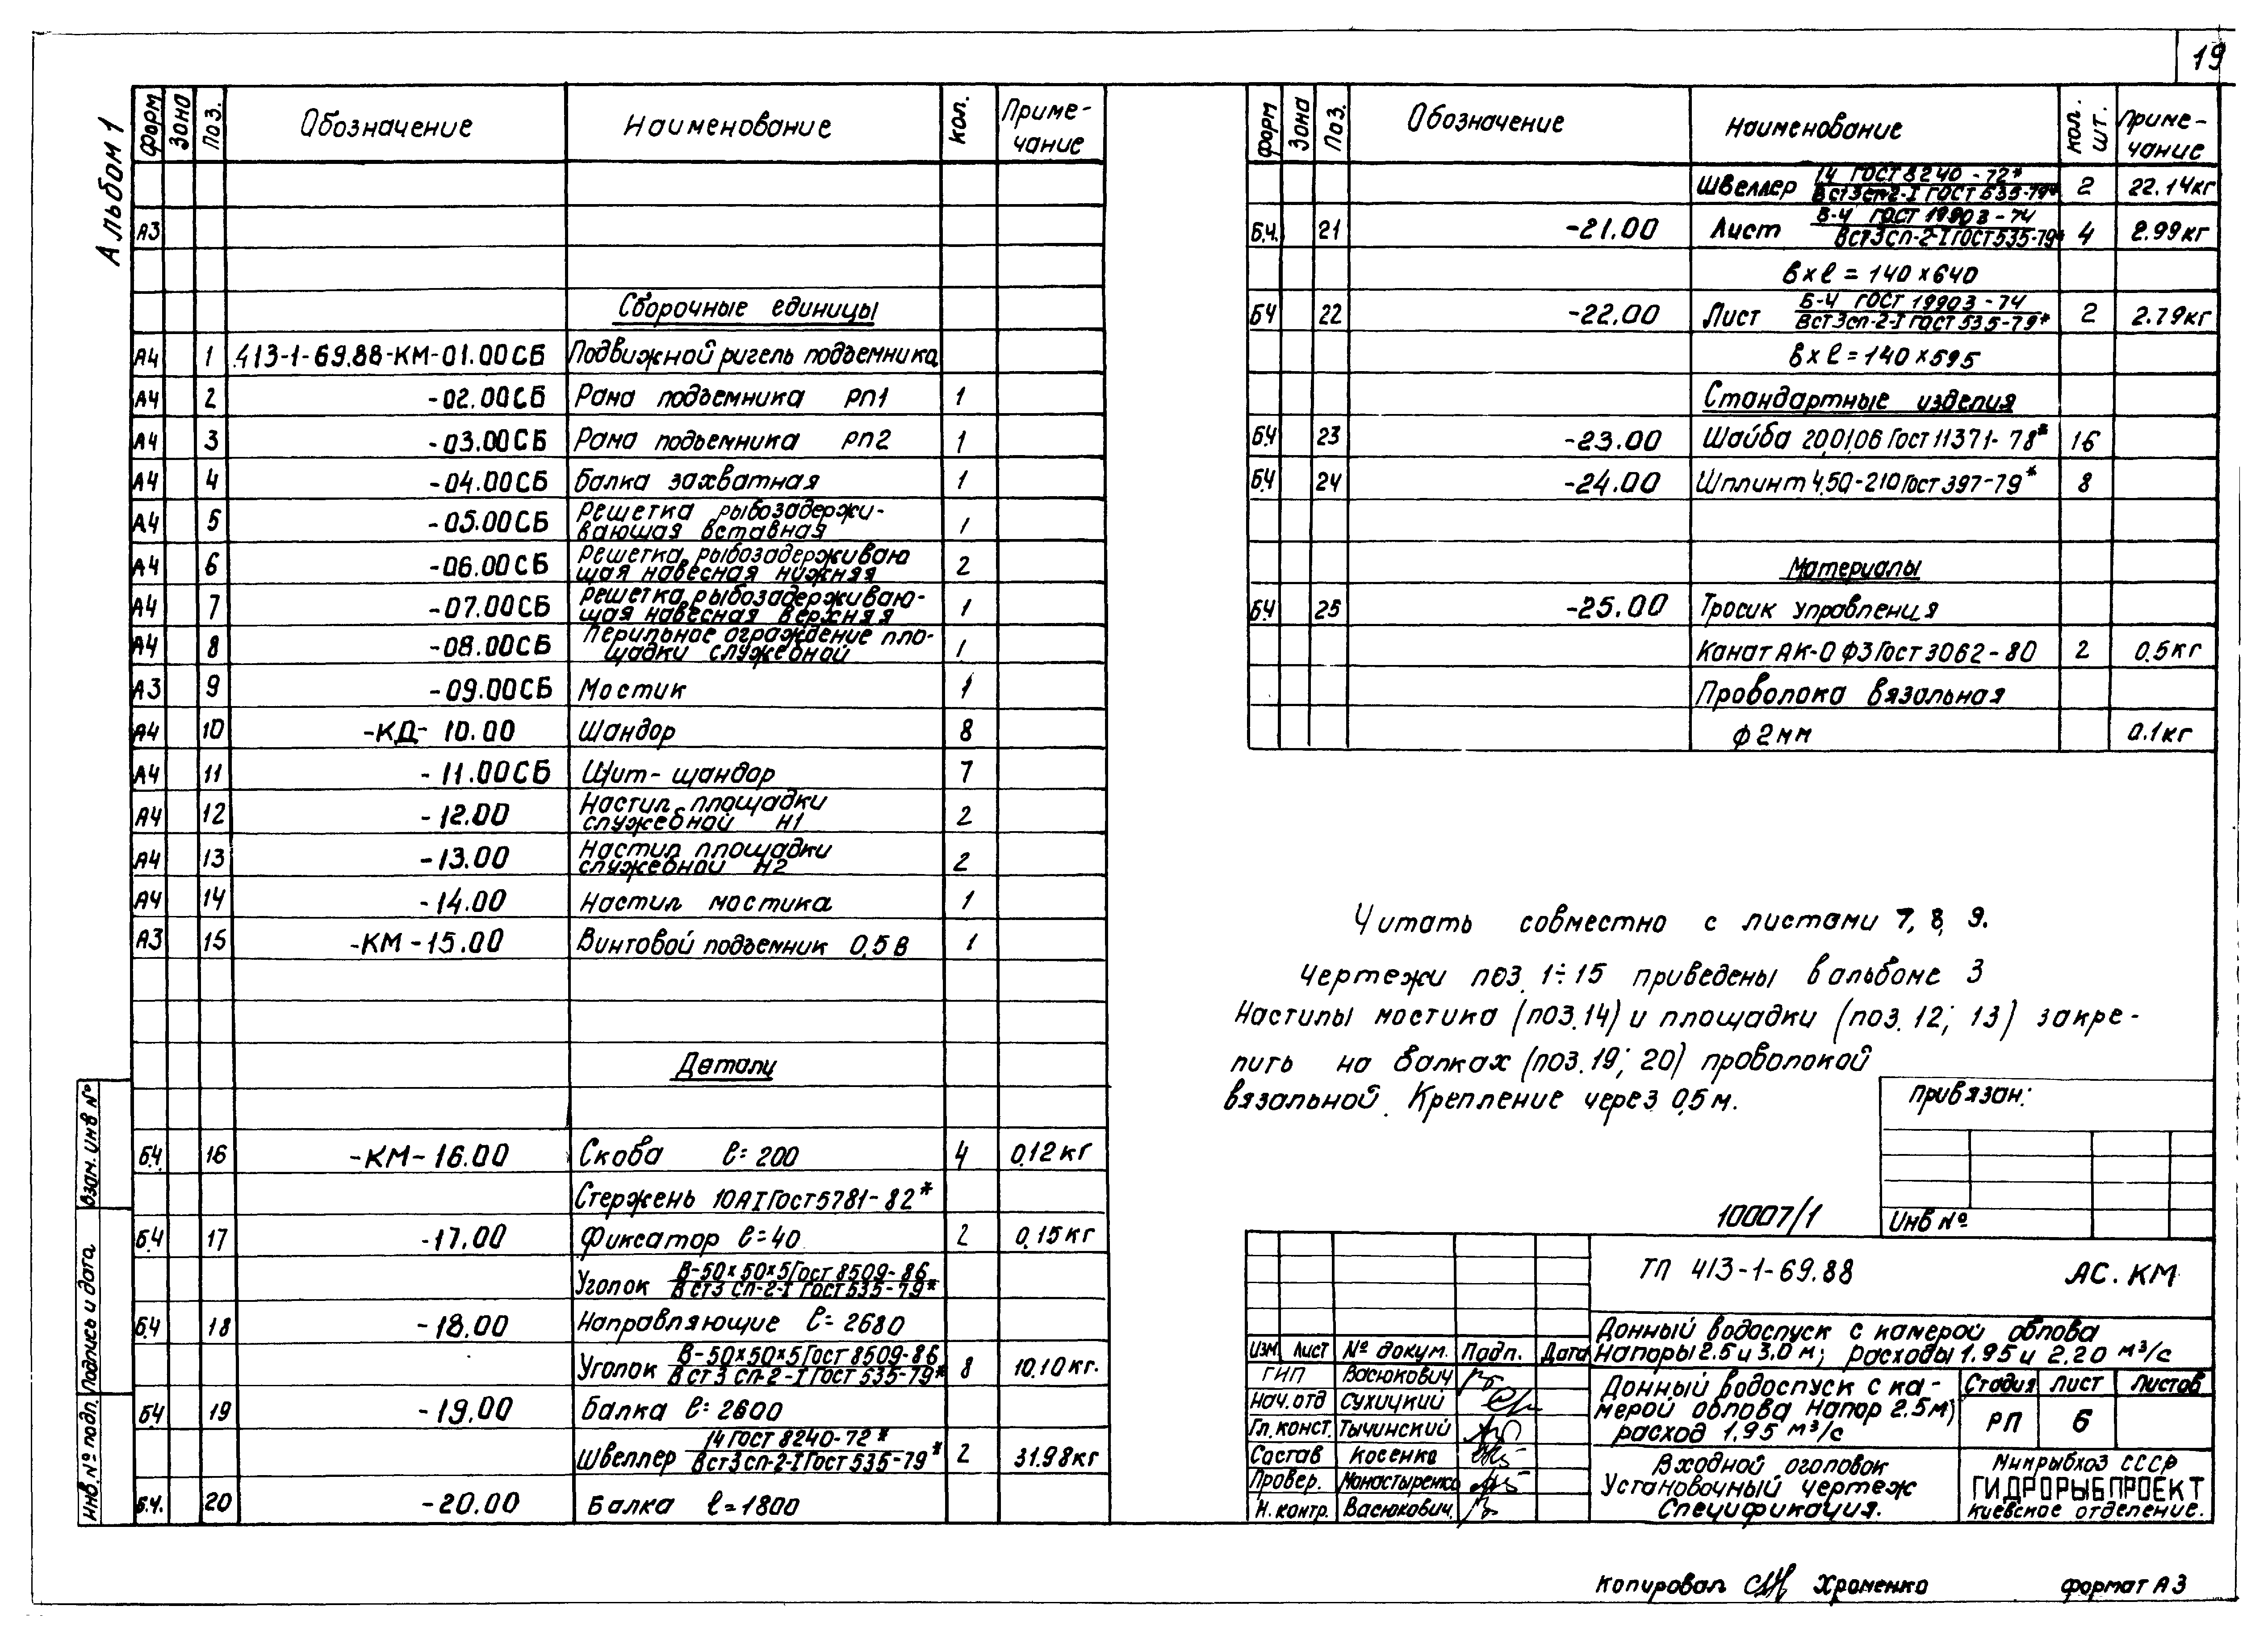 19
Альбом 1
Форм Зона Поз. Обозначение Наименование Кол. Приме-
чание
А3
Сборочные единицы
А4 1 413-1-69.88-КМ-01.00СБ Подвижной ригель подъемника
А4 2 -02.00СБ Рама подъемника РП1 1
А4 3 -03.00СБ Рама подъемника РП2 1
А4 4 -04.00СБ Балка захватная 1
А4 5 -05.00СБ Решетка рыбозадержи-
вающая вставная 1
А4 6 -06.00СБ Решетка рыбозадерживаю
щая навесная нижняя 2
А4 7 -07.00СБ Решетка рыбозадерживаю-
щая навесная верхняя 1
А4 8 -08.00СБ Перильное ограждение пло-
щадки служебной 1
А3 9 -09.00СБ Мостик 1
А4 10 -КД- 10.00 Шандор 8
А4 11 -11.00СБ Щит-шандор 7
А4 12 -12.00 Настил площадки
служебной Н1 2
А4 13 -13.00 Настил площадки
служебной Н2 2
А4 14 -14.00 Настил мостика 1
А3 15 -КМ-15.00 Винтовой подъемник 0,5В 1
Детали
Б.4. 16 -КМ-16.00 Скоба ℓ=200 4 0.12кг
Стержень 10АI Гост 5781-82*
Б.4 17 -17.00 Фиксатор ℓ=40 2 0.15кг
Уголок В-50×50×5 Гост 8509-86
Вст3 сп-2-I Гост 535-79*
Б.4 18 -18.00 Направляющие ℓ=2680
Уголок В-50×50×5 Гост 8509-86
Вст3 сп-2-I Гост 535-79* 8 10.10кг.
Б4 19 -19.00 Балка ℓ=2600
Швеллер 14 Гост 8240-72*
Вст3сп-2-I Гост 535-79* 2 31.98кг
Б.4. 20 -20.00 Балка ℓ=1800
Форм Зона Поз. Обозначение Наименование кол. шт. Приме-
чание
Швеллер 14 ГОСТ 8240-72*
Вст3сп-2-I ГОСТ 535-79* 2 22.14кг
Б.4. 21 -21.00 Лист Б-4 ГОСТ 19903-74
Вст3сп-2-I ГОСТ 535-79* 4 2.99кг
в×ℓ=140×640
Б4 22 -22.00 Лист Б-4 ГОСТ 19903-74
Вст3сп-2-I Гост 535-79* 2 2.79кг
в×ℓ=140×595
Стандартные изделия
Б.4 23 -23.00 Шайба 20,01,06 Гост 11371-78* 16
Б.4 24 -24.00 Шплинт 4,50-210 Гост 397-79* 8
Материалы
Б.4 25 -25.00 Тросик управления
Канат АК-0 Ф3 Гост 3062-80 2 0.5кг
Проволока вязальная
ф2мм 0.1кг
Читать совместно с листами 7, 8, 9.
Чертежи поз. 1÷15 приведены в альбоме 3
Настилы мостика (поз.14) и площадки (поз. 12; 13) закре-
пить на балках (поз.19; 20) проволокой
вязальной. Крепление через 0,5м.
Привязан:
Инв №
10007/1
ТП 413-1-69.88 АС.КМ
Донный водоспуск с камерой облова
Напоры 2.5 и 3.0 м; расходы 1.95 и 2.20 м³/с
Изм. Лист № докум. Подп. Дата
ГИП Васюкович
Нач.отд Сухицкий
Гл.конст. Тычинский
Состав Косенко
Провер. Монастыренко
Н.контр. Васюкович
Донный водоспуск с ка-
мерой облова Напор 2.5м;
расход 1.95 м³/с
Стадия Лист Листов
РП 6
Входной оголовок
Установочный чертеж
Спецификация.
Минрыбхоз СССР
ГИДРОРЫБПРОЕКТ
Киевское отделение.
Взам. инв №
Подпись и дата
Инв. № подл.
Копировал Хроменко формат А3